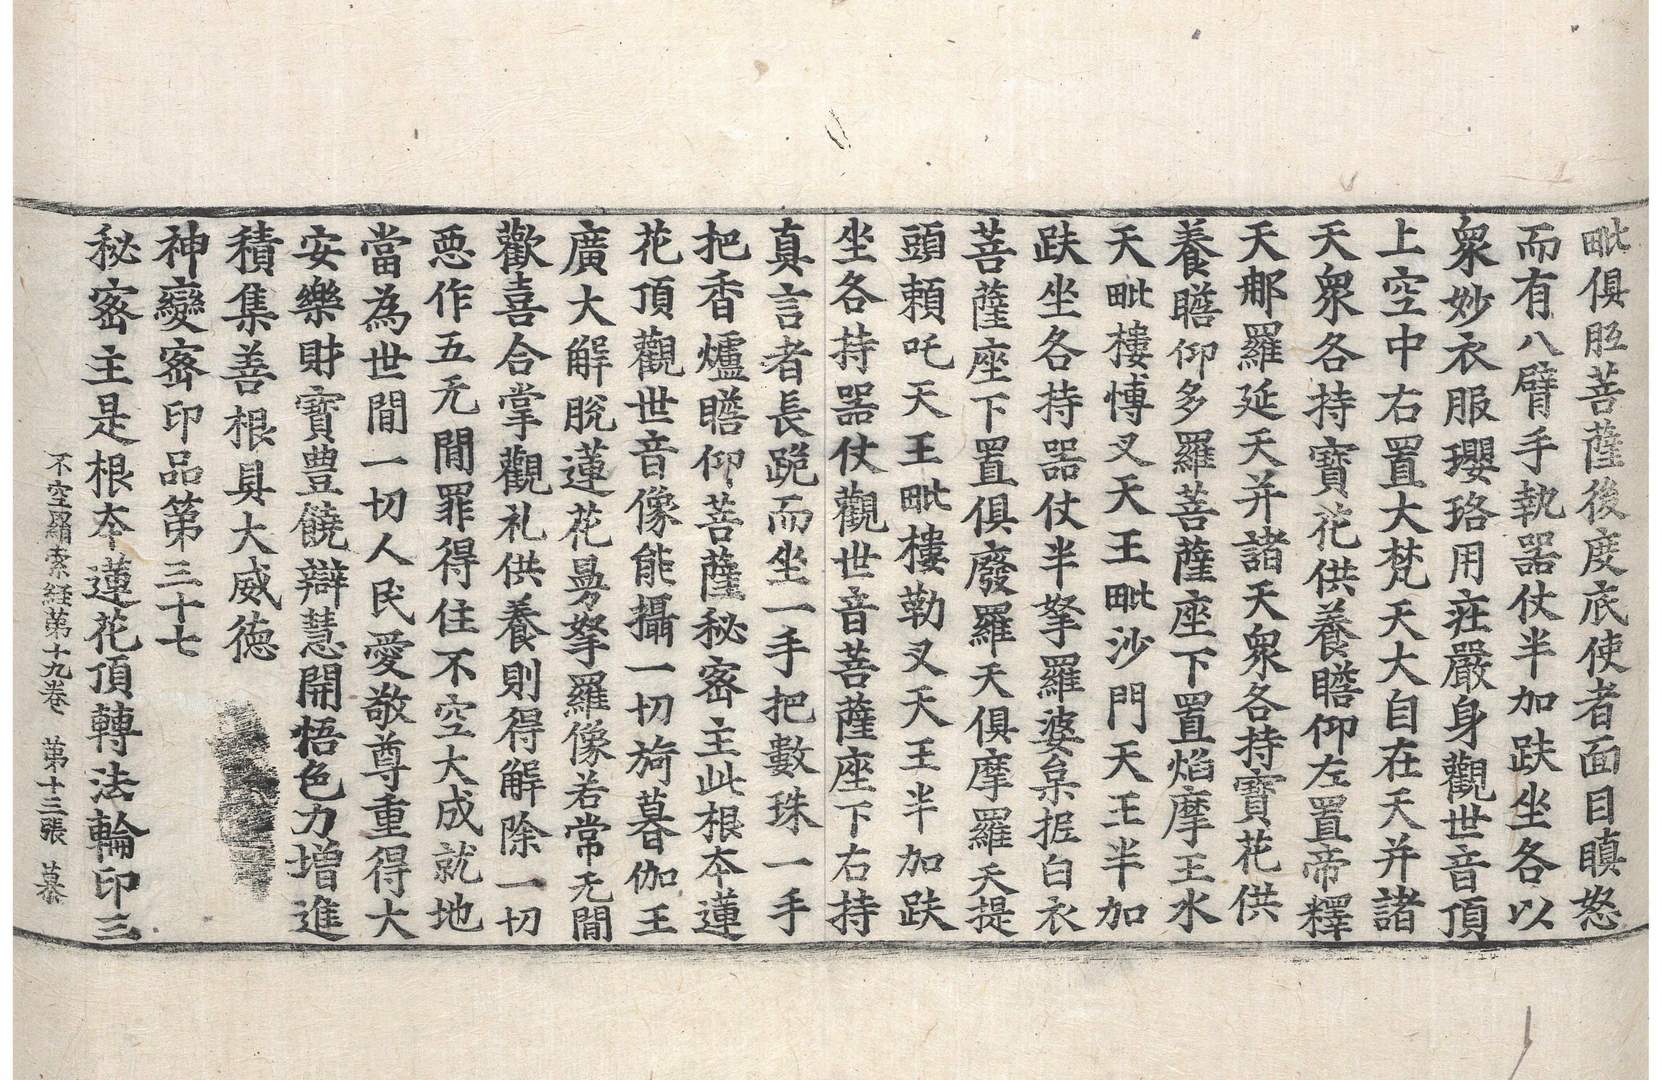 毗俱胝菩薩後度底使者面目瞋怒
而有八臂手執器仗半加趺坐各以
衆妙衣服瓔珞用莊嚴身觀世音頂
上空中右置大梵天大自在天并諸
天衆各持寶花供養瞻仰左置帝釋
天那羅延天并諸天衆各持寶花供
養瞻仰多羅菩薩座下置焰摩王水
天毗樓博叉天王毗沙門天王半加
趺坐各持器仗半拏羅婆枲抳白衣
菩薩座下置俱廢羅天俱摩羅天提
頭賴吒天王毗樓勒叉天王半加趺
坐各持器仗觀世音菩薩座下右持
真言者長跪而坐一手把數珠一手
把香爐瞻仰菩薩秘密主此根本蓮
花頂觀世音像能攝一切旖暮伽王
廣大解脫蓮花曼拏羅像若常无間
歡喜合掌觀礼供養則得解除一切
惡作五无間罪得住不空大成就地
當為世間一切人民愛敬尊重得大
安樂財寶豊饒辯慧開悟色力增進
積集善根具大威德
神變密印品第三十七
秘密主是根本蓮花頂轉法輪印三
不空羂索経第十九卷 第十三張 慕